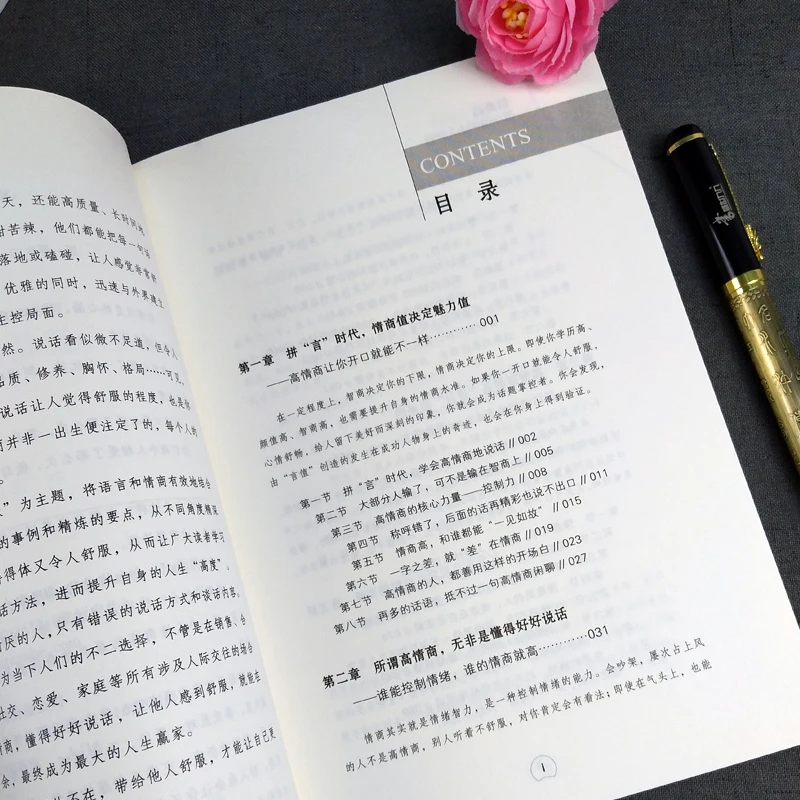 天，还能高质量、长时间地
甜苦辣，他们都能把每一句话
落地或磕碰，让人感觉非常舒
优雅的同时，迅速与外界建立
主控局面。
然。说话看似微不足道，但令人
品质、修养、胸怀、格局……可见，
说话让人觉得舒服的程度，也是
而并非一出生便注定了的，每个人的
为主题，将语言和情商有效地结合
的事例和精炼的要点，从不同角度精深
得体又令人舒服，从而让广大读者学习
话方法，进而提升自身的人生“高度”。
讨厌的人，只有错误的说话方式和谈话内容。
为当下人们的不二选择，不管是在销售、台
社交、恋爱、家庭等所有涉及人际交往的场合
情商，懂得好好说话，让他人感到舒服，就能在
余，最终成为最大的人生赢家。
不在，带给他人舒服，才能让自己更
CONTENTS
目 录
第一章 拼“言”时代，情商值决定魅力值
——高情商让你开口就能不一样………… 001
在一定程度上，智商决定你的下限，情商决定你的上限。即使你学历高、
颜值高、智商高，也需要提升自身的情商水准。如果你一开口就能令人舒服，
心情舒畅，给人留下美好而深刻的印象，你就会成为话题掌控者。你会发现，
由“言值”创造的发生在成功人物身上的奇迹，也会在你身上得到验证。
第一节 拼“言”时代，学会高情商地说话 // 002
第二节 大部分人输了，可不是输在智商上 // 005
第三节 高情商的核心力量——控制力 // 008
第四节 称呼错了，后面的话再精彩也说不出口 // 011
第五节 情商高，和谁都能“一见如故” // 015
第六节 一字之差，就“差”在情商 // 019
第七节 高情商的人，都善用这样的开场白 // 023
第八节 再多的话语，抵不过一句高情商闲聊 // 027
第二章 所谓高情商，无非是懂得好好说话
——谁能控制情绪，谁的情商就高…………031
情商其实就是情绪智力，是一种控制情绪的能力。会吵架，屡次占上风
的人不是高情商，别人听着不舒服，对你肯定会有看法；即使在气头上，也能
1